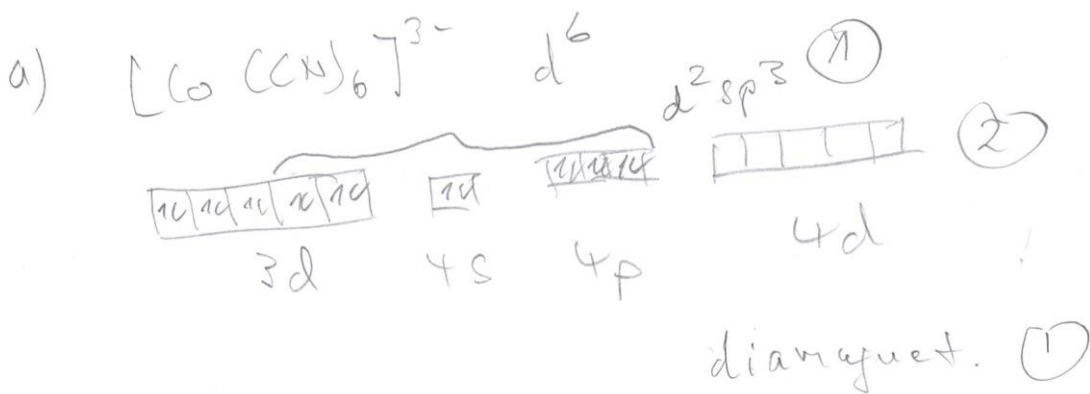 a) [Co (CN)6]3- d6
d2sp3 1
2
3d 4s 4p 4d
diamagnet. 1